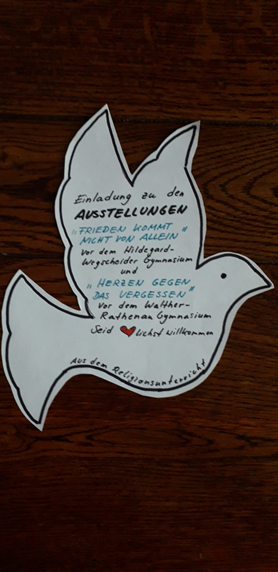 Einladung zu den
AUSSTELLUNGEN
„FRIEDEN KOMMT
NICHT VON ALLEIN"
vor dem Hildegard-
Wegscheider Gymnasium
und
„HERZEN GEGEN
DAS VERGESSEN"
vor dem Walther-
Rathenau Gymnasium
Seid ❤lichst willkommen
Aus dem Religionsunterricht